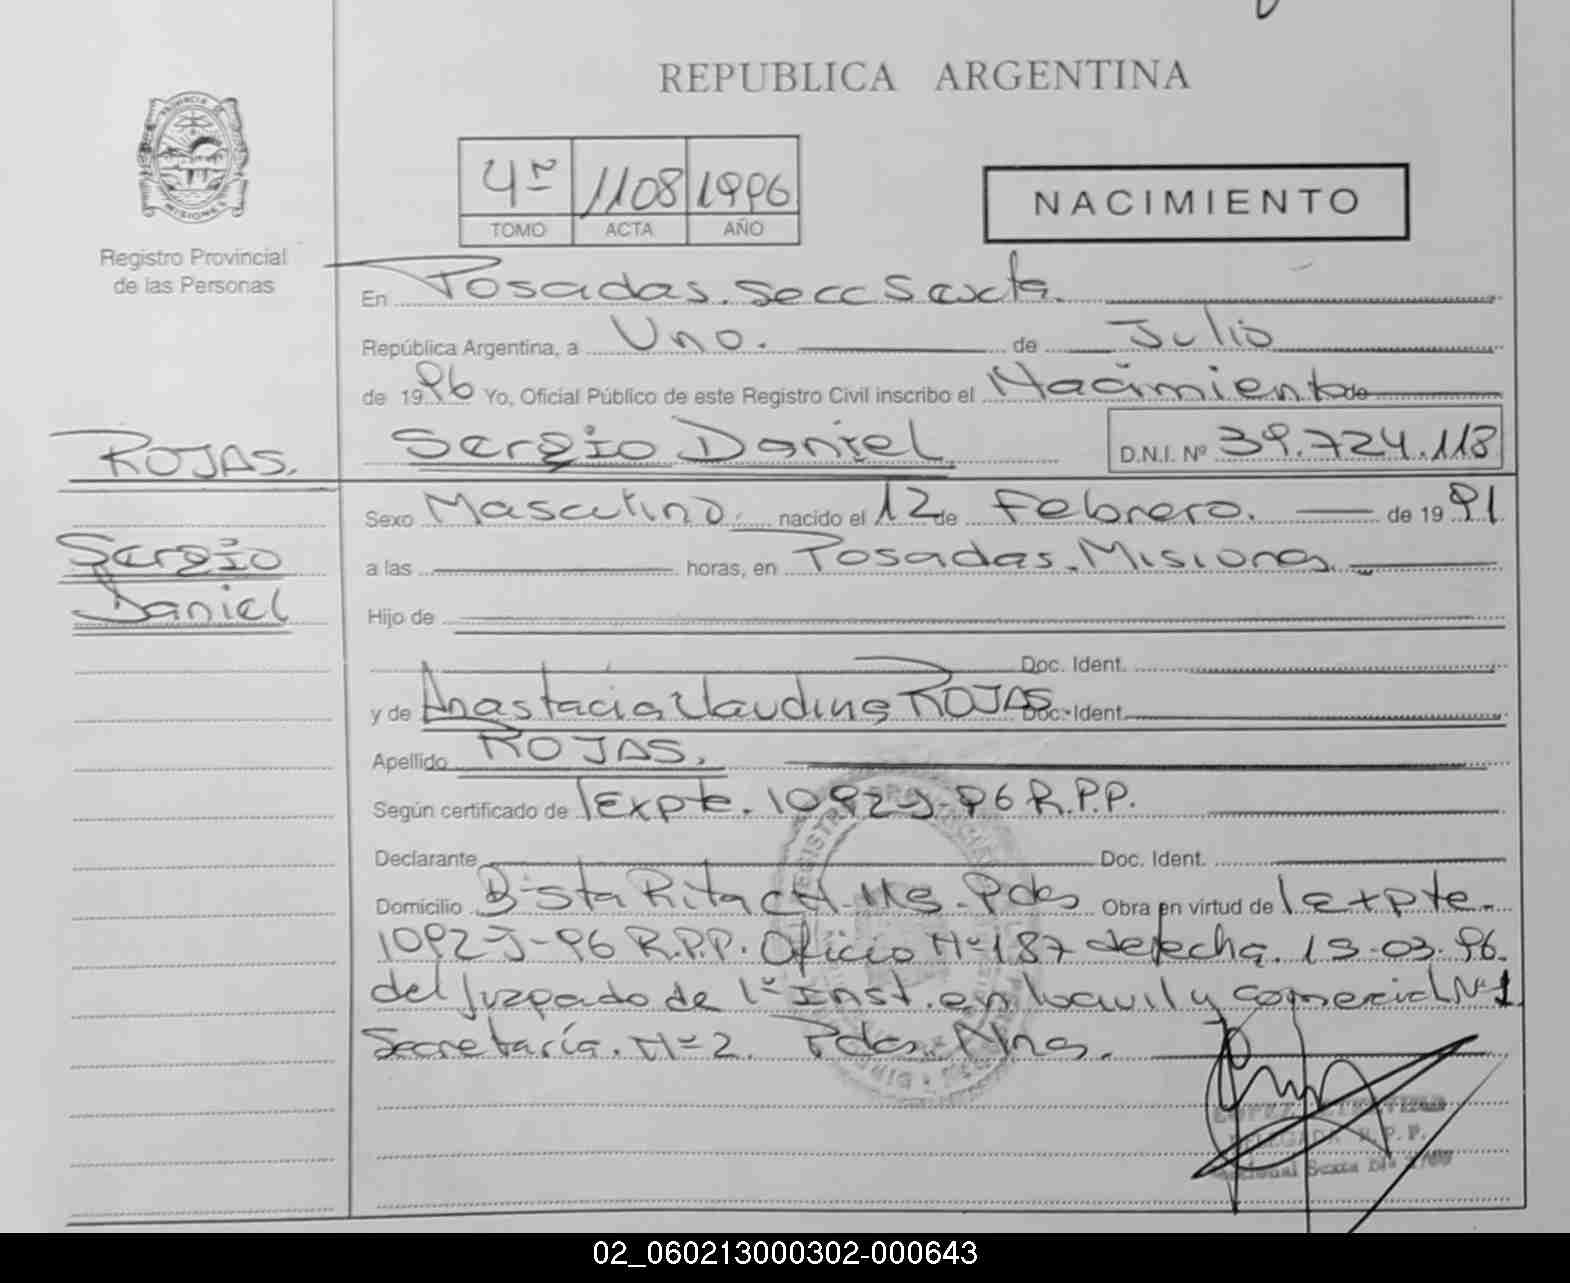 REPUBLICA ARGENTINA
PROVINCIA DE
MISIONES
Registro Provincial
de las Personas
4º 1108 1996
TOMO ACTA AÑO
NACIMIENTO
En Posadas. Secc Sexta.
República Argentina, a Uno. de Julio
de 1996 Yo, Oficial Público de este Registro Civil inscribo el Nacimiento de
ROJAS. Sergio Daniel D.N.I. Nº 39.724.113
Sexo Masculino nacido el 12 de Febrero. de 1991
Sergio
a las horas, en Posadas. Misiones.
Daniel
Hijo de
Doc. Ident.
y de Anastacia Claudina ROJAS Doc. Ident.
Apellido ROJAS.
Según certificado de Expte. 1092-J-96 R.P.P.
Declarante Doc. Ident.
Domicilio Bº Sta Rita CH. Pdas Obra en virtud de Expte.
1092-J-96 R.P.P. Oficio Nº 187 de fecha. 13-03-96.
del Juzgado de 1º Inst. en lo civil y comercial Nº 1
Secretaría. Nº 2. Pdas. Mnes.
DELEGADA R.P.P.
Sexta
02_060213000302-000643